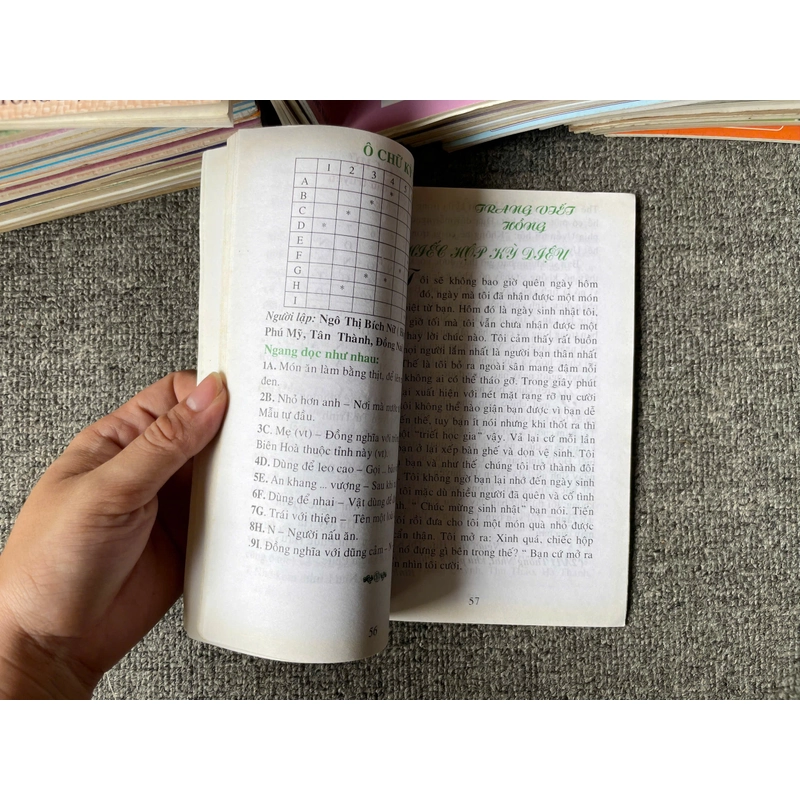 Ô CHỮ KỲ
1 2 3 4 5
A
B
C
D
E
F
G
H
I
Người lập: Ngô Thị Bích Nữ
Phú Mỹ, Tân Thành, Đồng
Ngang dọc như nhau:
1A. Món ăn làm bằng thịt, để
đen.
2B. Nhỏ hơn anh – Nơi mà
Mẫu tự đầu.
3C. Mẹ (vt) – Đồng nghĩa với
Biên Hoà thuộc tỉnh này (vt).
4D. Dùng để leo cao – Gọi ...
5E. An khang ... vượng – Sau
6F. Dùng để nhai – Vật dùng để
7G. Trái với thiện – Tên một
8H. N – Người nấu ăn.
9I. Đồng nghĩa với dũng cảm –
56
TRANG VIẾT
HỒNG
HỘP KỲ DIỆU
Tôi sẽ không bao giờ quên ngày hôm
đó, ngày mà tôi đã nhận được một món
biệt từ bạn. Hôm đó là ngày sinh nhật tôi,
giờ tối mà tôi vẫn chưa nhận được một
hay lời chúc nào. Tôi cảm thấy rất buồn
hơi người lầm nhất là người bạn thân nhất
Thế là tôi bỏ ra ngoài sân mang đậm nỗi
không ai có thể tháo gỡ. Trong giây phút
lại xuất hiện với nét mặt rạng rỡ nụ cười
không thể nào giận bạn được vì bạn dễ
thế, tuy bạn ít nói nhưng khi thốt ra thì
một "triết học gia" vậy. Vả lại cứ mỗi lần
bạn ở lại xếp bàn ghế và dọn vệ sinh. Tôi
bạn và như thế chúng tôi trở thành đôi
Tôi không ngờ bạn lại nhớ đến ngày sinh
tôi mặc dù nhiều người đã quên và cố tình
" Chúc mừng sinh nhật" bạn nói. Tiến
rồi đưa cho tôi một món quà nhỏ được
cẩn thận. Tôi mở ra: Xinh quá, chiếc hộp
nó đựng gì bên trong thế? " Bạn cứ mở ra
nhìn tôi cười.
57